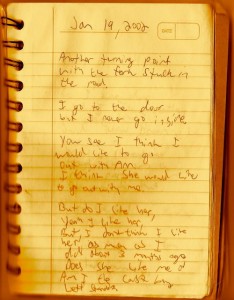 Jan 19, 2002
DATE
Another turning point
with the fork stuck in
the road.
I go to the door
but I never go inside
You see I think I
would like to go
out with Ann
I think She would like
to go out with me
But do I like her,
Yeah I like her,
But I don't think I like
her as much as I
did about 3 months ago
does she like me or
Am I the